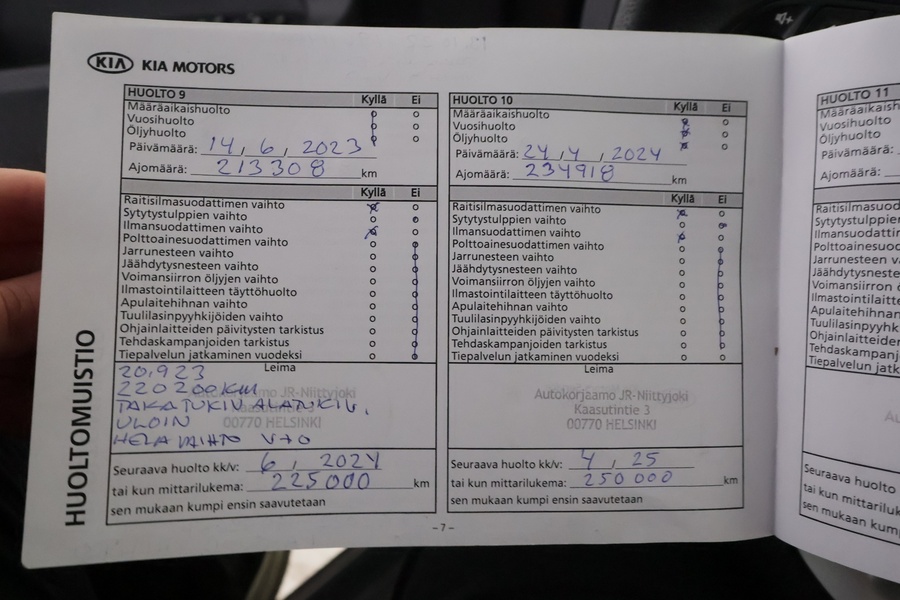 KIA KIA MOTORS
HUOLTO 9 Kyllä Ei
Määräaikaishuolto
Vuosihuolto
Öljyhuolto
Päivämäärä: 14, 6, 2023
Ajomäärä: 213308 km
Kyllä Ei
Raitisilmasuodattimen vaihto
Sytytystulppien vaihto
Ilmansuodattimen vaihto
Polttoainesuodattimen vaihto
Jarrunesteen vaihto
Jäähdytysnesteen vaihto
Voimansiirron öljyjen vaihto
Ilmastointilaitteen täyttöhuolto
Apulaitehihnan vaihto
Tuulilasinpyyhkijöiden vaihto
Ohjainlaitteiden päivitysten tarkistus
Tehdaskampanjoiden tarkistus
Tiepalvelun jatkaminen vuodeksi
Leima
20.923
220200KM
TAKATUKIV. ALATUKIV.
ULOIN
HELA VAIHTO V+O
Autokorjaamo JR-Niittyjoki
Kaasutintie 3
00770 HELSINKI
Seuraava huolto kk/v: 6, 2024
tai kun mittarilukema: 225000 km
sen mukaan kumpi ensin saavutetaan
HUOLTO 10 Kyllä Ei
Määräaikaishuolto
Vuosihuolto
Öljyhuolto
Päivämäärä: 24, 4, 2024
Ajomäärä: 234918 km
Kyllä Ei
Raitisilmasuodattimen vaihto
Sytytystulppien vaihto
Ilmansuodattimen vaihto
Polttoainesuodattimen vaihto
Jarrunesteen vaihto
Jäähdytysnesteen vaihto
Voimansiirron öljyjen vaihto
Ilmastointilaitteen täyttöhuolto
Apulaitehihnan vaihto
Tuulilasinpyyhkijöiden vaihto
Ohjainlaitteiden päivitysten tarkistus
Tehdaskampanjoiden tarkistus
Tiepalvelun jatkaminen vuodeksi
Leima
Autokorjaamo JR-Niittyjoki
Kaasutintie 3
00770 HELSINKI
Seuraava huolto kk/v: 4, 25
tai kun mittarilukema: 250 000 km
sen mukaan kumpi ensin saavutetaan
HUOLTOMUISTIO
-7-
HUOLTO 11
Määräaikaish
Vuosihuolto
Öljyhuolto
Päivämäärä:
Ajomäärä:
Raitisilmasuod
Sytytystulppien
Ilmansuodattim
Polttoainesuoda
Jarrunesteen va
Jäähdytysnestee
Voimansiirron ö
Ilmastointilaitte
Apulaitehihnan
Tuulilasinpyyhk
Ohjainlaitteiden
Tehdaskampanj
Tiepalvelun jatk
Seuraava huolto
tai kun mittariluk
sen mukaan kum